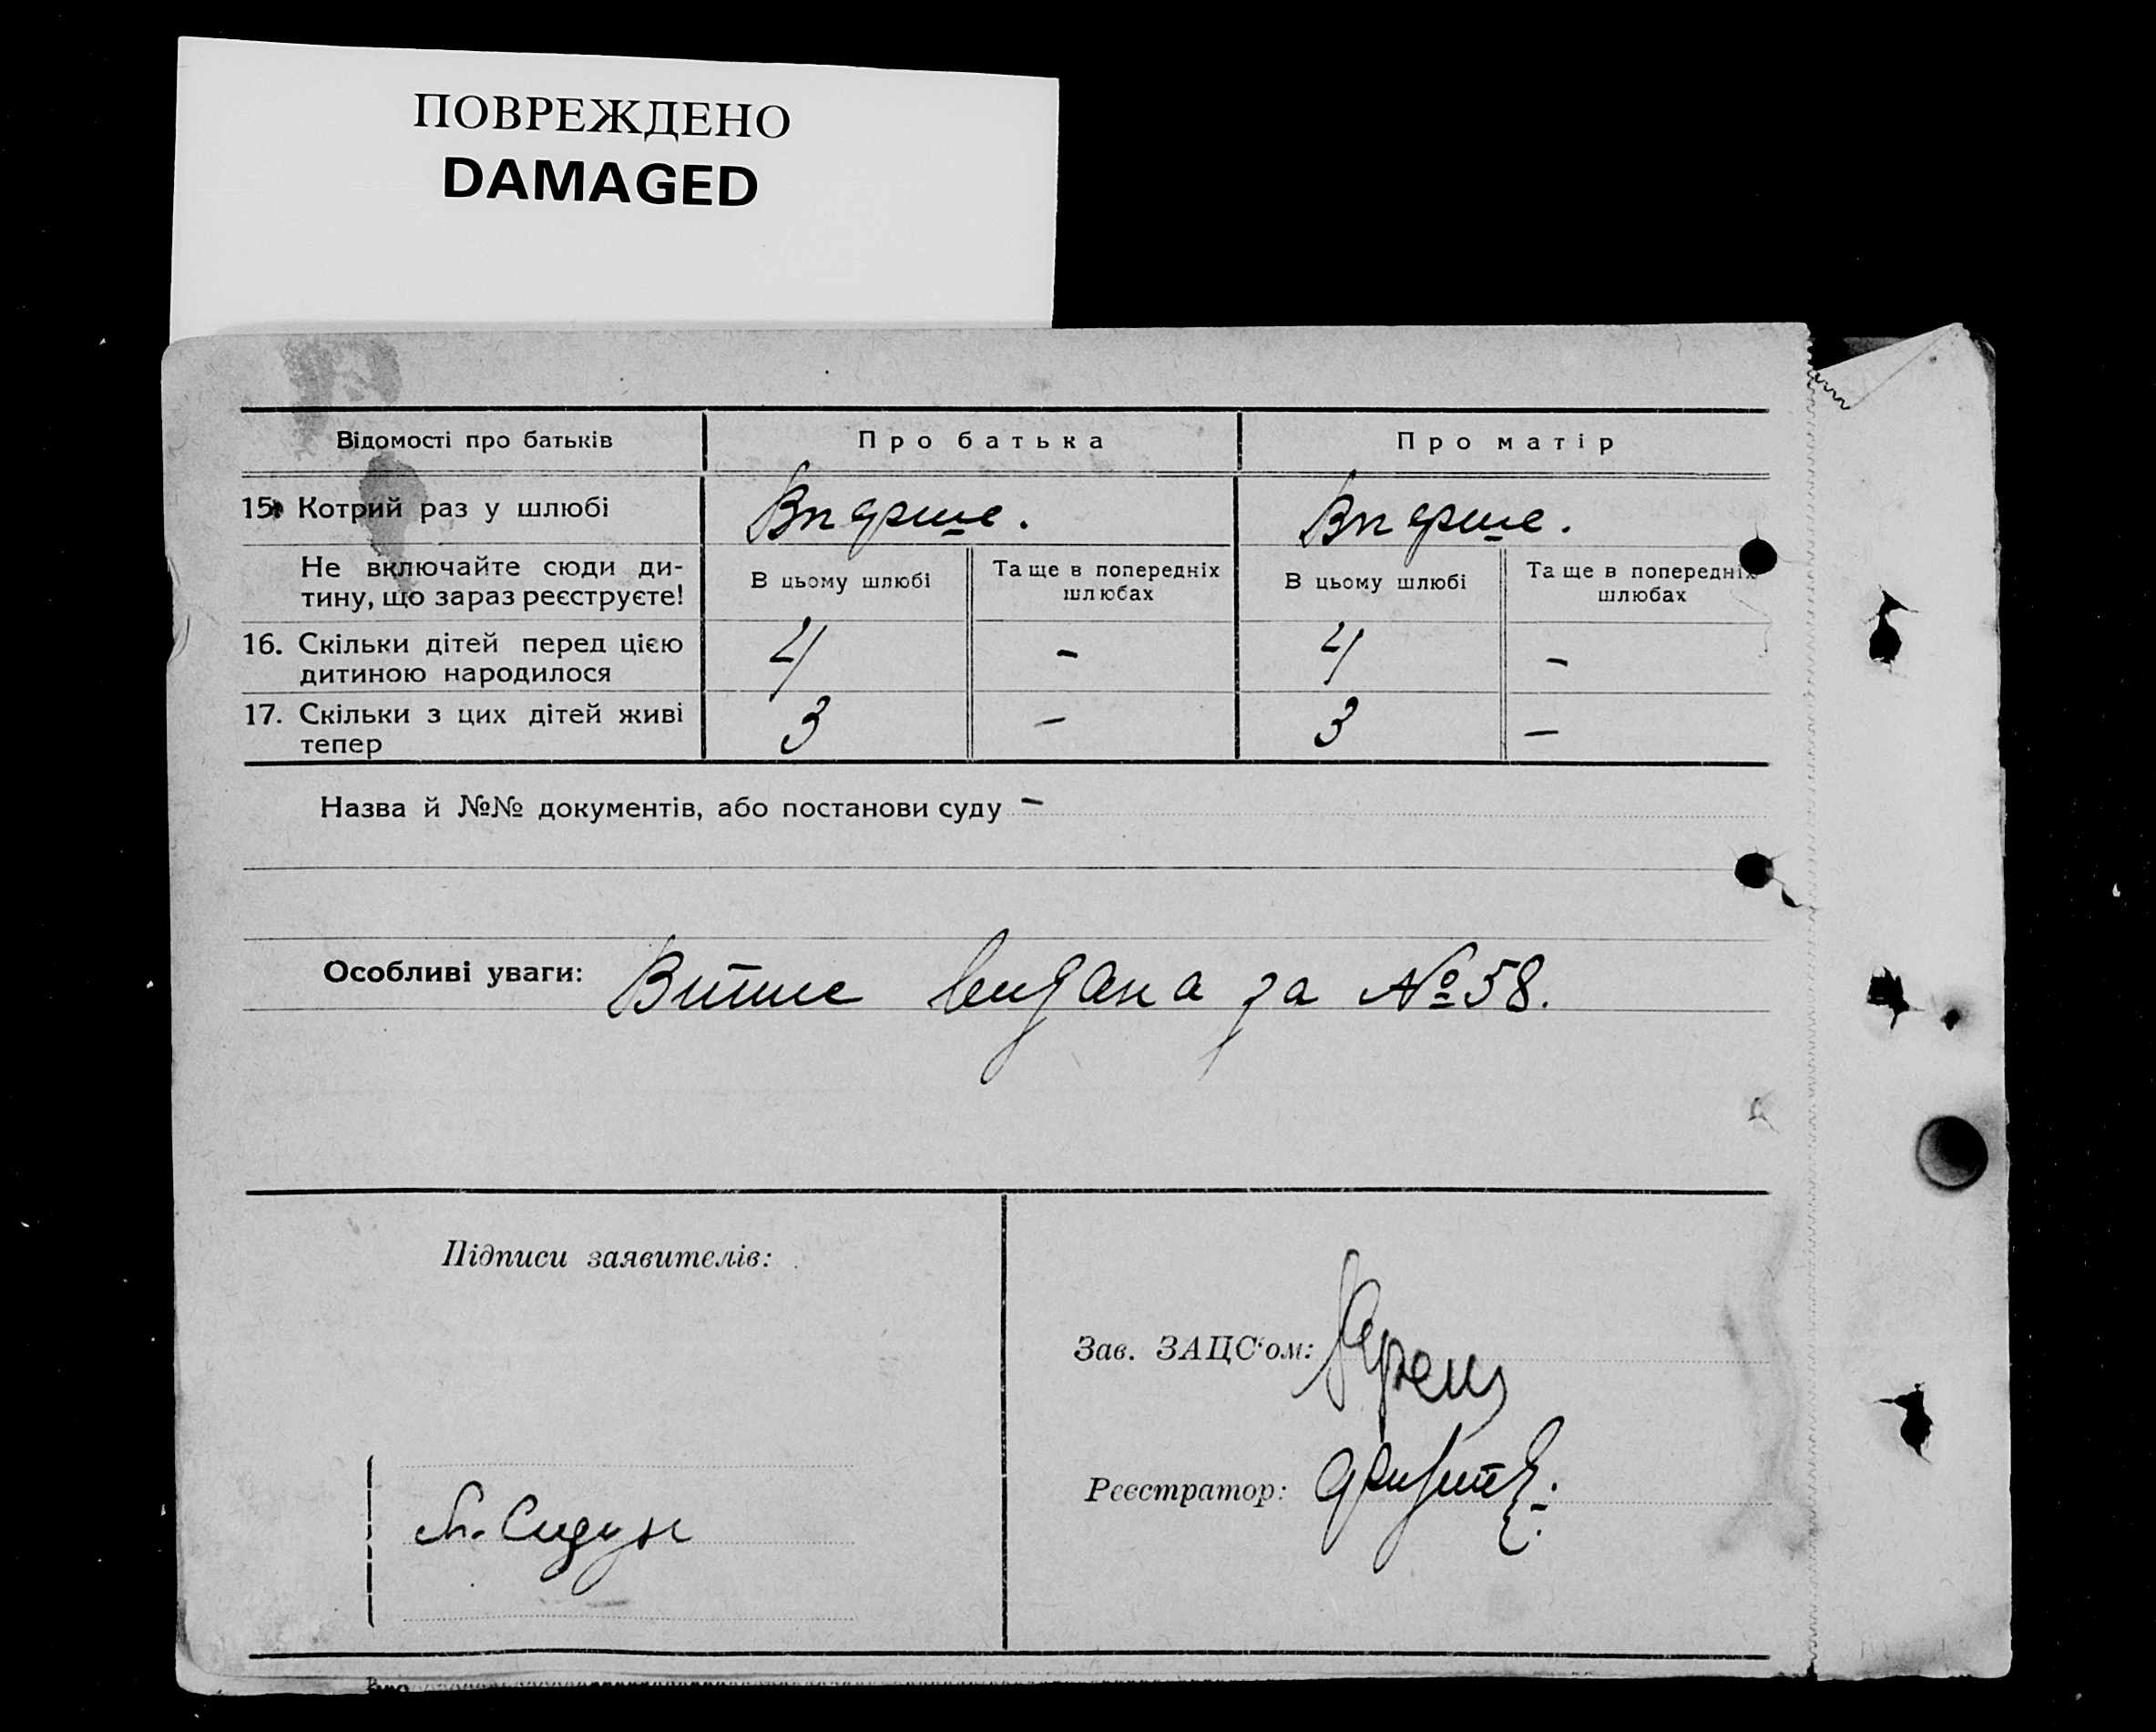 ПОВРЕЖДЕНО
DAMAGED
Відомості про батьків
Про батька
Про матір
15. Котрий раз у шлюбі
Вперше.
Вперше.
Не включайте сюди ди-
тину, що зараз реєструєте!
В цьому шлюбі
Та ще в попередніх
шлюбах
В цьому шлюбі
Та ще в попередніх
шлюбах
16. Скільки дітей перед цією
дитиною народилося
4
-
4
-
17. Скільки з цих дітей живі
тепер
3
-
3
-
Назва й №№ документів, або постанови суду -
Особливі уваги: видана за №58.
Підписи заявителів:
Зав. ЗАЦС'ом:
Реєстратор: